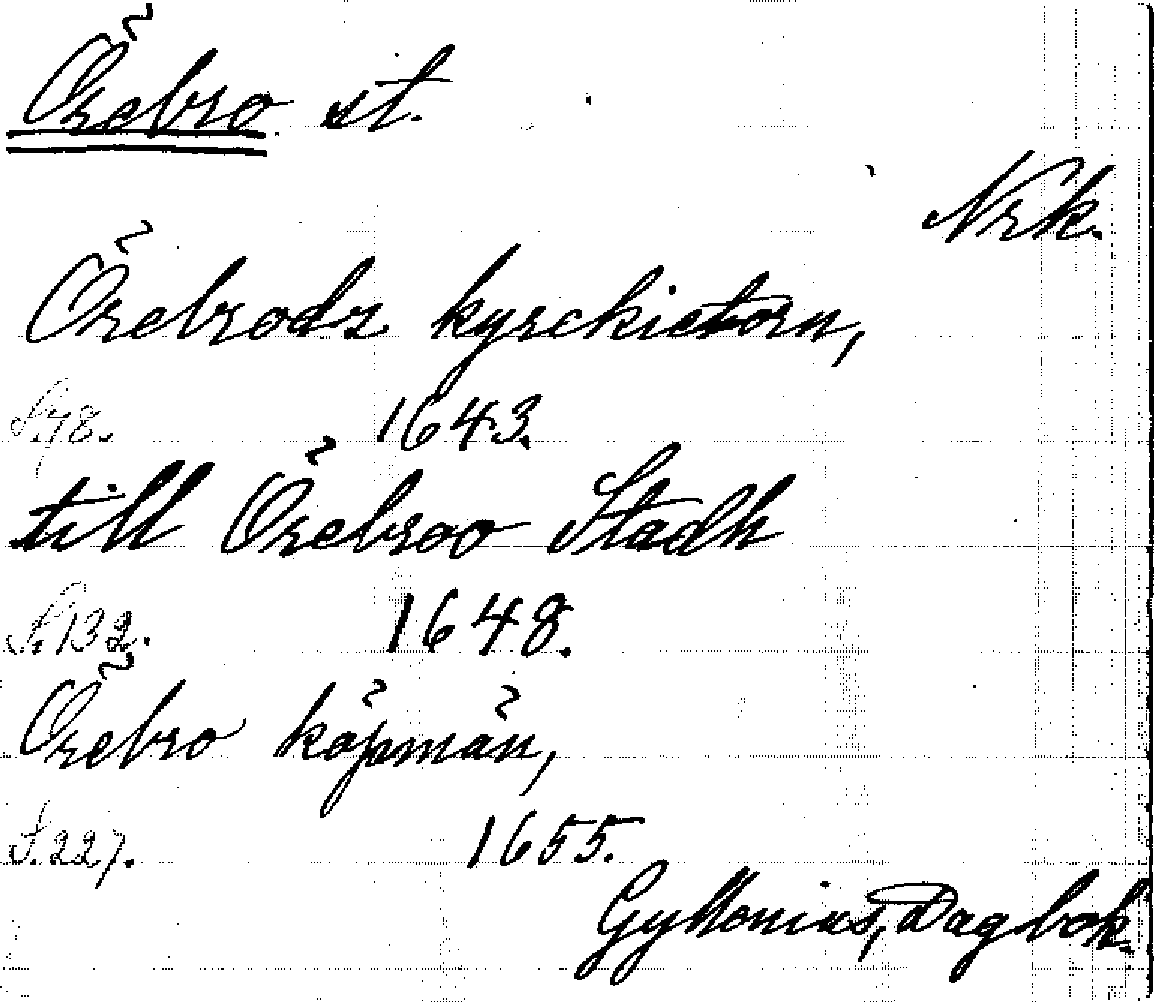 Örebro st.
Nrk.
Örebrodz kyrckietorn,
S. 78. 1643.
till Örebroo Stadh
S. 132. 1648.
Örebro köpmän,
S. 227. 1655.
Gyllonius, Dagbok.